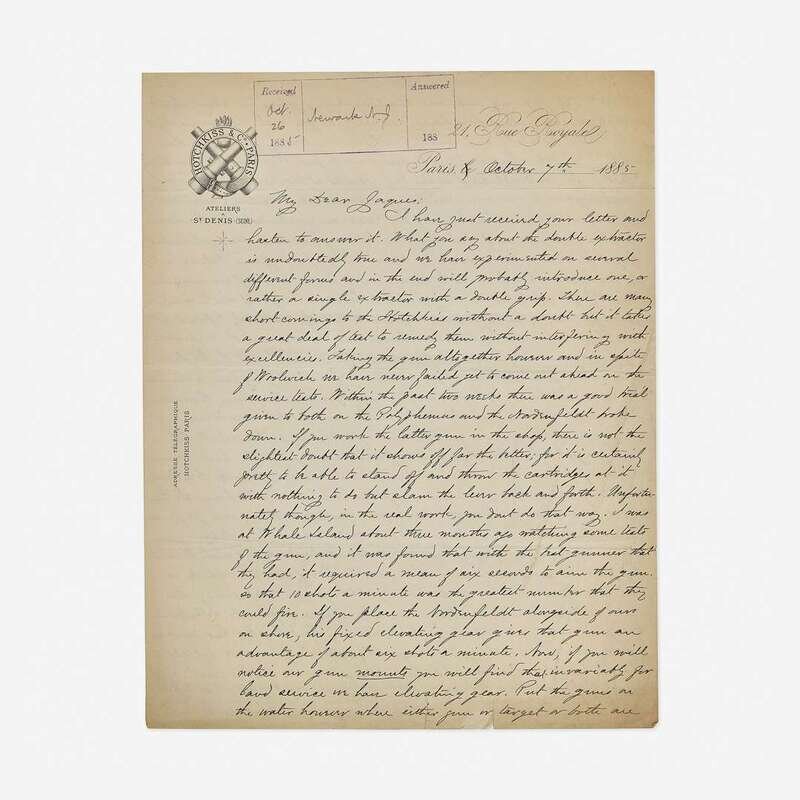 Received
Oct.
26
1885
Newark N.J.
Answered
188
HOTCHKISS & Cº. PARIS
ATELIERS
À
Sᵗ DENIS (SEINE)
ADRESSE TÉLÉGRAPHIQUE
HOTCHKISS PARIS
21, Rue Royale
Paris, October 7th 1885
My Dear Jaques;
I have just received your letter and
hasten to answer it. What you say about the double extractor
is undoubtedly true and we have experimented on several
different forms and in the end will probably introduce one, or
rather a single extractor with a double grip. There are many
short comings to the Hotchkiss without a doubt but it takes
a great deal of test to remedy them without interfering with
excellencies. Taking the gun altogether however and in spite
of Woolwich we have never failed yet to come out ahead on the
service tests. Within the past two weeks there was a good trial
given to both on the Polyphemus and the Nordenfeldt broke
down. If you work the latter gun in the shop, there is not the
slightest doubt that it shows off far the better, for it is certainly
pretty to be able to stand off and throw the cartridges at it
with nothing to do but slam the lever back and forth. Unfortu-
nately though, in the real work, you dont do that way. I was
at Whale Island about three months ago watching some tests
of the gun, and it was found that with the best gunner that
they had, it required a mean of six seconds to aim the gun,
so that 10 shots a minute was the greatest number that they
could fire. If you place the Nordenfeldt alongside of ours
on shore, his fixed elevating gear gives that gun an
advantage of about six shots a minute. Now, if you will
notice our gun mounts you will find that invariably for
land service we have elevating gear. Put the guns on
the water however where either gun or target or both are